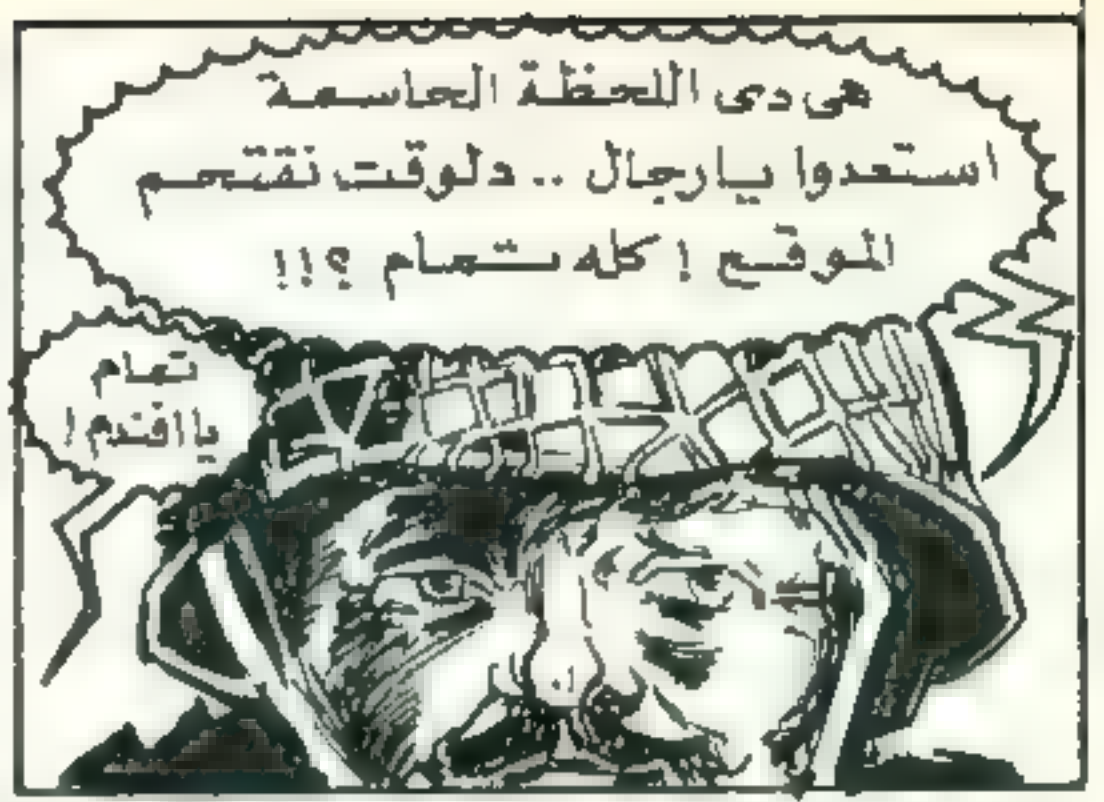 هى دى اللحظة الحاسمة
استعدوا يارجال .. دلوقت نقتحم
الموقع ! كله تمام ؟!!
تمام
ياافندم !